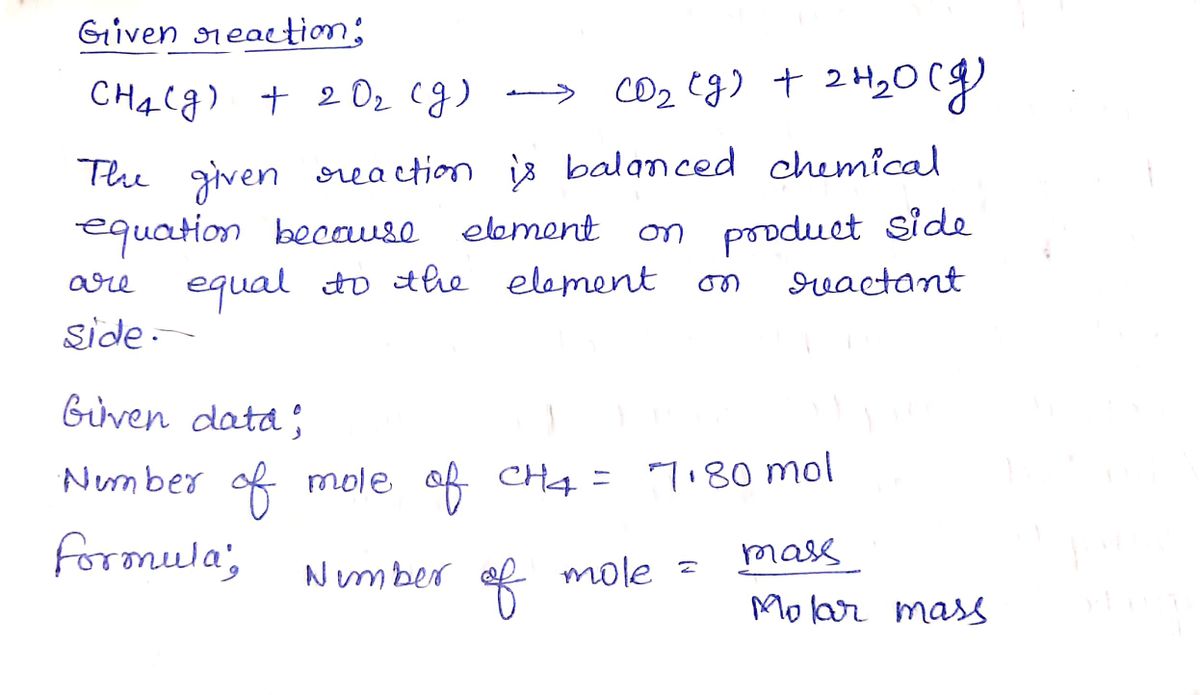 Given reaction;
CH4(g) + 2 O2 (g) → CO2 (g) + 2H2O (g)
The given reaction is balanced chemical
equation because element on product side
are equal to the element on reactant
side.
Given data;
Number of mole of CH4 = 7.80 mol
formula; Number of mole = mass / Molar mass